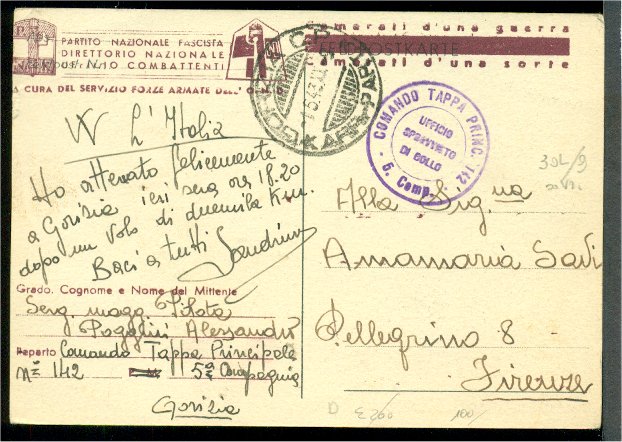 PARTITO NAZIONALE FASCISTA
DIRETTORIO NAZIONALE
COMBATTENTI
A CURA DEL SERVIZIO FORZE ARMATE DELL'O.N.D.
amerati d'una guerra
FELDPOSTKARTE
amerati d'una sorte
COMANDO TAPPA PRINC. 142
UFFICIO
SPROVVISTO
DI BOLLO
5. Comp.
W L'Italia
Ho atterrato felicemente
a Gorizia ieri sera ore 18.20
dopo un volo di duemila Km.
Baci a tutti Sandrino
Grado. Cognome e Nome del Mittente
Serg. magg. Pilota
Poggini Alessandro
Reparto Comando Tappa Principale
Nº 142 5ª Compagnia
Gorizia
Alla Sig.na
Annamaria Savi
Pellegrino 8
Firenze
100/